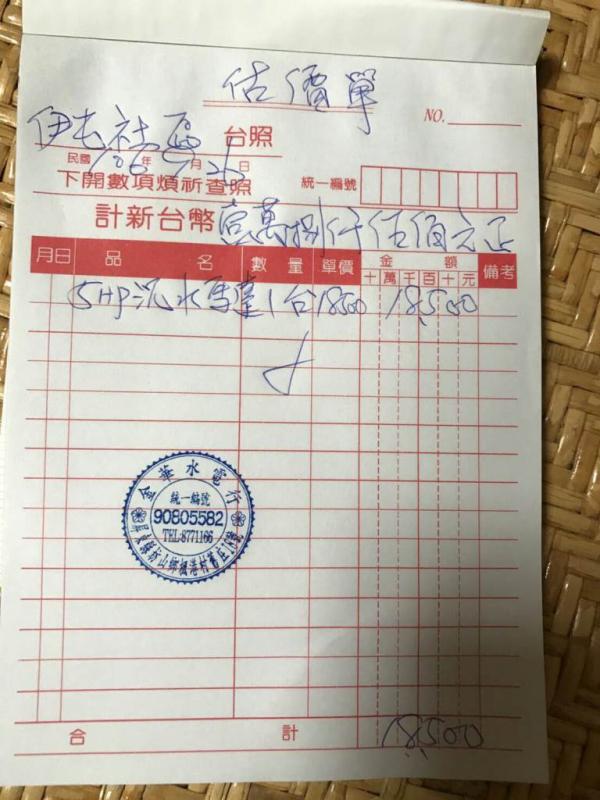 估價單
NO.
伊屯社區 台照
民國 106 年 月 日
下開數項煩祈查照 統一編號
計新台幣 壹萬捌仟伍佰元正
月日 品名 數量 單價 金額 備考
十萬千百十元
5HP沉水馬達 1台 18500 18,500
金華水電行
統一編號
90805582
TEL:8771166
屏東縣枋山鄉楓港村舊庄
合計 18,500